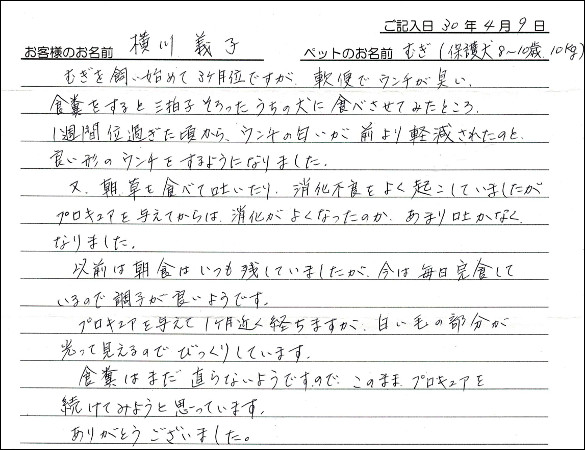 ご記入日 30年4月9日
お客様のお名前 横川 義子 ペットのお名前 むぎ(保護犬8~10歳.10kg)
むぎを飼い始めて3ヶ月位ですが、軟便でウンチが臭い、
食糞をすると三拍子そろったうちの犬に食べさせてみたところ、
1週間位過ぎた頃から、ウンチの匂いが前より軽減されたのと、
良い形のウンチをするようになりました。
又、朝、草を食べて吐いたり、消化不良をよく起こしていましたが
プロキュアを与えてからは、消化がよくなったのか、あまり吐かなく
なりました。
以前は朝食はいつも残していましたが、今は毎日完食して
いるので調子が良いようです。
プロキュアを与えて1ヶ月近く経ちますが、白い毛の部分が
光って見えるのでびっくりしています。
食糞はまだ直らないようですので、このままプロキュアを
続けてみようと思っています。
ありがとうございました。